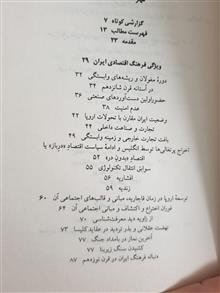 گزارشی کوتاه ۷
فهرست مطالب ۱۳
مقدمه ۲۳
ویژگی فرهنگ اقتصادی ایران ۲۹
دورهٔ مغولان و ریشه‌های وابستگی ۳۲
در آستانه قرن شانزدهم ۳۴
حضور اولین دست‌آوردهای صنعتی ۳۶
عدم امنیت ۳۸
وضعیت ایران مقارن با تحولات اروپا ۴۲
تجارت و صناعت داخلی ۴۴
بافت تجارت خارجی و زمینه وابستگی ۴۹
اخراج پرتغالی‌ها توسط انگلیس و ادامهٔ سیاست اقتصاد «دربار» یا
اقتصاد بدون دره ۵۴
سوابق انتقال تکنولوژی ۵۵
افشاریه ۵۶
زندیه ۵۹
توسعهٔ اروپا در زمان قاجاریه، مبانی و قالب‌های اجتماعی آن ۶۰
فوران اختراع و اکتشاف و مبانی اجتماعی آن ۶۴
از زاویه دید معرفت‌شناسی ۷۰
نهضت عقلانی و بذر تردید در عقاید کلیسا ۷۳
آخرین نماز در بامداد جنگ ۷۷
کشیدن سنگ زیربنا ۷۷
دنباله فرهنگ ایران در قرن نوزدهم ۸۷